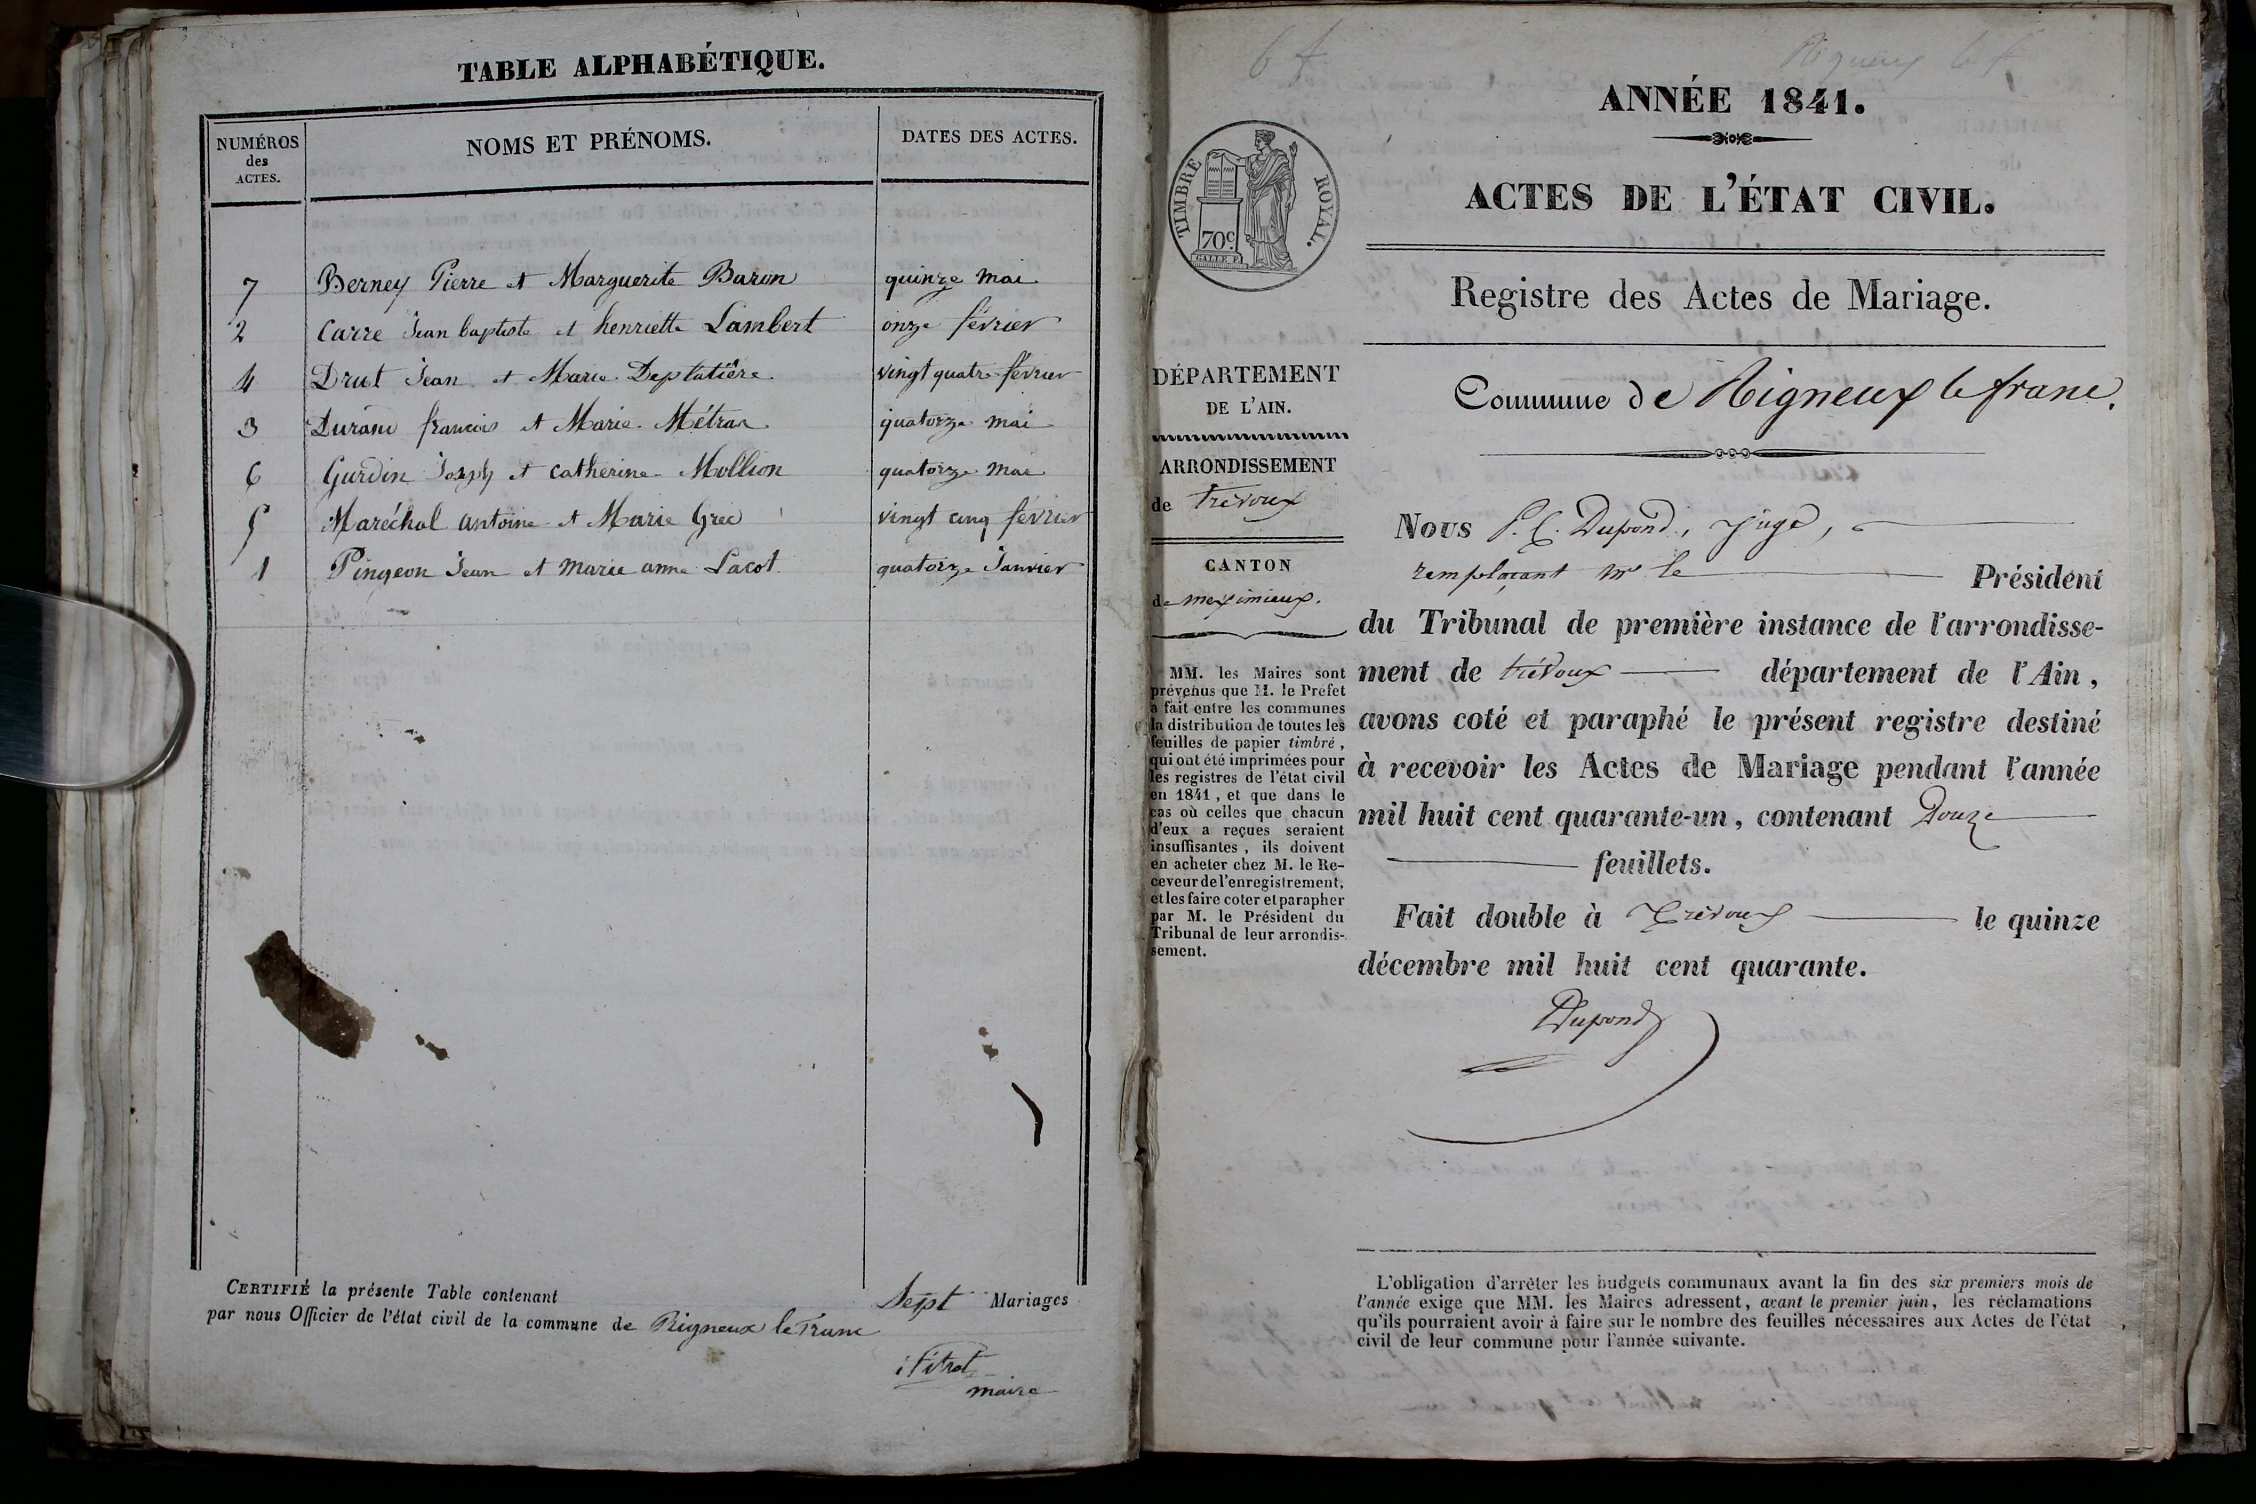 TABLE ALPHABÉTIQUE.
NUMÉROS des ACTES.
NOMS ET PRÉNOMS.
DATES DES ACTES.
7 Berney Pierre et Marguerite Baron quinze mai
2 Carre Jean baptiste et henriette Lambert onze février
4 Drut Jean et Marie Deplatière vingt quatre février
3 Durand francois et Marie Métral quatorze mai
6 Gurdin Joseph et Catherine Mollion quatorze mai
5 Maréchal antoine et Marie Grec vingt cinq février
1 Pingeon Jean et marie anne Lacot quatorze Janvier
CERTIFIÉ la présente Table contenant Sept Mariages
par nous Officier de l'état civil de la commune de Rigneux le Franc
maire
Rigneux le f
ANNÉE 1841.
TIMBRE ROYAL.
70c
ACTES DE L'ÉTAT CIVIL.
Registre des Actes de Mariage.
Commune de Rigneux le franc.
DÉPARTEMENT
DE L'AIN.
ARRONDISSEMENT
de trévoux
CANTON
de meximieux.
MM. les Maires sont
prévenus que M. le Préfet
a fait entre les communes
la distribution de toutes les
feuilles de papier timbré,
qui ont été imprimées pour
les registres de l'état civil
en 1841, et que dans le
cas où celles que chacun
d'eux a reçues seraient
insuffisantes, ils doivent
en acheter chez M. le Re-
ceveur de l'enregistrement,
et les faire coter et parapher
par M. le Président du
Tribunal de leur arrondis-
sement.
Nous P. C. Dupond, Juge,
remplaçant Mr le Président
du Tribunal de première instance de l'arrondisse-
ment de trévoux département de l'Ain,
avons coté et paraphé le présent registre destiné
à recevoir les Actes de Mariage pendant l'année
mil huit cent quarante-un, contenant Douze
feuillets.
Fait double à Trévoux le quinze
décembre mil huit cent quarante.
Dupond
L'obligation d'arrêter les budgets communaux avant la fin des six premiers mois de
l'année exige que MM. les Maires adressent, avant le premier juin, les réclamations
qu'ils pourraient avoir à faire sur le nombre des feuilles nécessaires aux Actes de l'état
civil de leur commune pour l'année suivante.